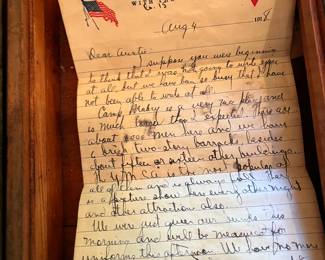 WITH
Aug 4 1918
Dear Auntie:
I suppose you were beginning
to think that I was not going to write
at all but we have been so busy that I have
not been able to write at all.
Camp is a very nice place and
is much larger than I expected. There are
about men here and we have
two story barracks besides
about fifteen or sixteen other buildings.
The Y.M.C.A. is the most popular of
all of them and is always full. There
is a picture show here every other night
and other attractions also.
We were just given our this
morning and will be measured for
uniforms this afternoon. We have no more